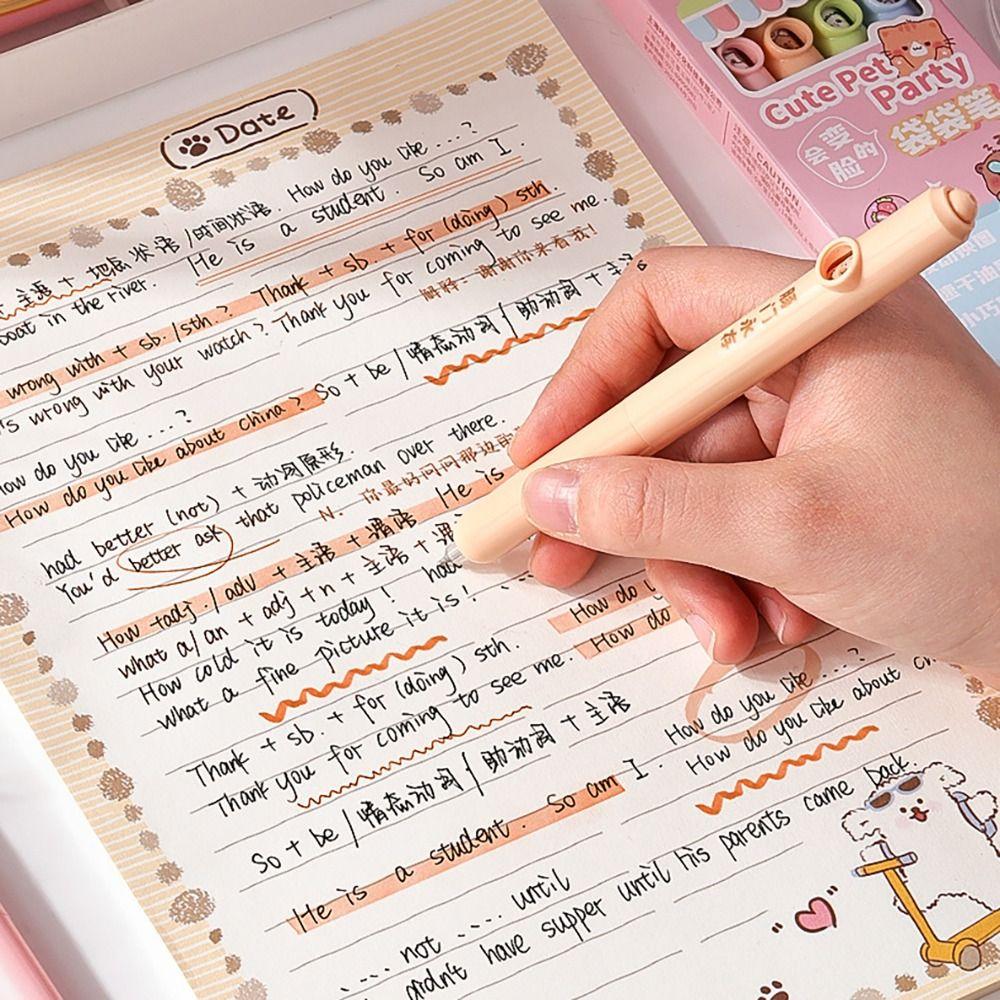 Date
Cute Pet Party
会变脸的
袋袋笔
CAUTION
How do you like ....?
主语 + 地点状语 / 时间状语.
He is a student. So am I.
boat in the river.
Thank + sb. + for (doing) sth
wrong with + sb. /sth.?
Thank you for coming to see me.
解释: 谢谢你来看我!
's wrong with your watch?
So + be / 情态动词 / 助动词 + 主
How do you like ....?
How do you like about China?
had better (not) + 动词原形.
You'd better ask that policeman over there.
你最好问问那边
N. He is
How + adj. / adv + 主语 + 谓语
what a/an + adj + n + 主语 + 谓
How cold it is today!
what a fine picture it is!
How do
How do
Thank + sb. + for (doing) sth.
Thank you for coming to see me.
How do you like ....?
How do you like about
So + be / 情态动词 / 助动词 + 主语
He is a student. So am I.
.... not .... until
didn't have supper until his parents came back.